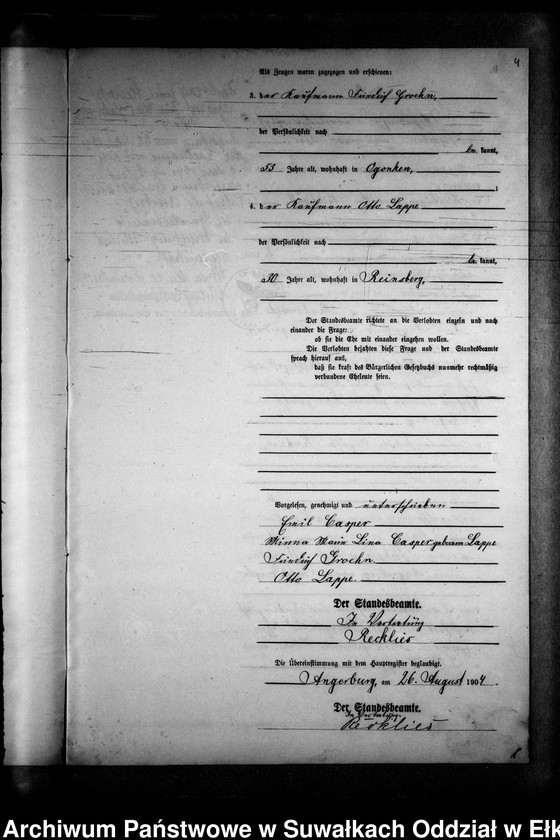 4
Als Zeugen waren zugezogen und erschienen:
3. der Kaufmann Friedrich Grochn,
der Persönlichkeit nach
be kannt,
53 Jahre alt, wohnhaft in Ogonken,
;
4. der Kaufmann Otto Lappe
der Persönlichkeit nach
be kannt,
30 Jahre alt, wohnhaft in Reinsberg,
Der Standesbeamte richtete an die Verlobten einzeln und nach
einander die Frage:
ob sie die Ehe mit einander eingehen wollen.
Die Verlobten bejahten diese Frage und der Standesbeamte
sprach hierauf aus,
daß sie kraft des Bürgerlichen Gesetzbuchs nunmehr rechtmäßig
verbundene Eheleute seien.
Vorgelesen, genehmigt und unterschrieben
Emil Casper
Minna Marie Lina Casper geborene Lappe
Friedrich Grochn.
Otto Lappe.
Der Standesbeamte.
In Vertretung
Recklies
Die Übereinstimmung mit dem Hauptregister beglaubigt.
Angerburg, am 26. August 1904.
Der Standesbeamte.
In Vertretung.
Recklies
Archiwum Państwowe w Suwałkach Oddział w Ełk